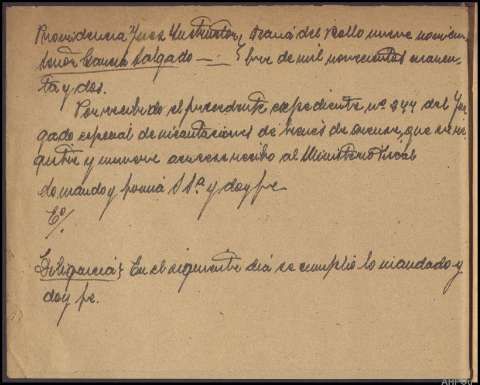 Providencia Juez Instructor, Puebla del Bollo nueve noviem-
Señor García Salgado —. bre de mil novecientos cuaren-
ta y dos.
Por recibido el precedente expediente nº 944 del Juz-
gado especial de incautaciones de bienes de Orense, que se re-
gistre y numere acuse recibo al Ministerio Fiscal
Lo mando y firma S Sª y doy fe
Eº/.
Diligencia} En el siguiente día se cumplió lo mandado y
doy fe.